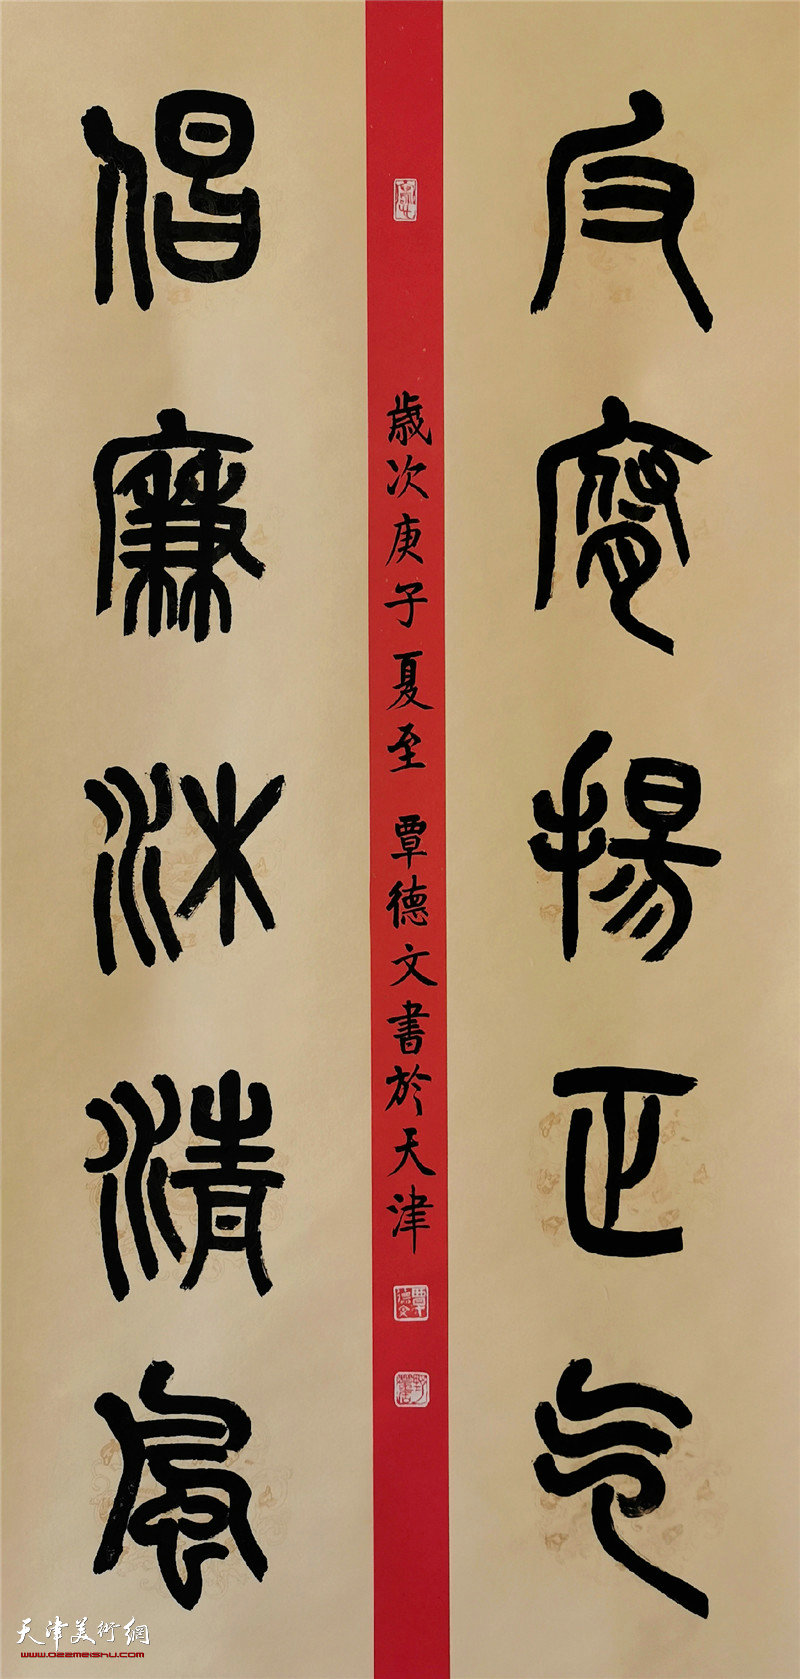 反腐揚正气
歲次庚子夏至 覃德文書於天津
倡廉沐清風
天津美術網
www.022meishu.com